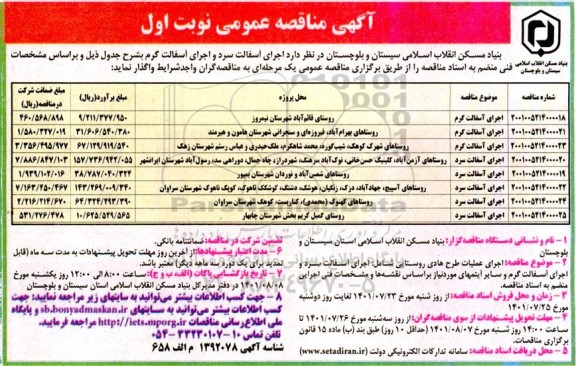 آگهی مناقصه عمومی نوبت اول
بنیاد مسکن انقلاب اسلامی
سیستان و بلوچستان
بنیاد مسکن انقلاب اسلامی سیستان و بلوچستان در نظر دارد اجرای آسفالت سرد و اجرای آسفالت گرم بشرح جدول ذیل و براساس مشخصات
فنی منضم به اسناد مناقصه را از طریق برگزاری مناقصه عمومی یک مرحله‌ای به مناقصه‌گران واجدشرایط واگذار نماید:
شماره مناقصه موضوع مناقصه محل پروژه مبلغ برآورد(ریال) مبلغ ضمانت شرکت در مناقصه(ریال)
۲۰۰۱۰۰۵۲۱۴۰۰۰۰۱۸ اجرای آسفالت گرم روستای قائم‌آباد شهرستان نیمروز ۹/۲۱۱/۳۷۷/۹۵۰ ۴۶۰/۵۶۸/۸۹۸
۲۰۰۱۰۰۵۲۱۴۰۰۰۰۲۱ اجرای آسفالت گرم روستاهای بهرام‌آباد، فیروزه‌ای و سنجرانی شهرستان هامون و هیرمند ۳۱/۶۰۶/۵۴۰/۳۸۰ ۱/۵۸۰/۳۲۷/۰۱۹
۲۰۰۱۰۰۵۲۱۴۰۰۰۰۲۳ اجرای آسفالت گرم روستاهای شهرک کوهک، شیب‌کوره، محمد شاهکرم، ملک‌حیدری و عباس رستم شهرستان زهک ۶۷/۱۲۹/۹۱۹/۵۴۰ ۳/۳۵۶/۴۹۵/۹۷۷
۲۰۰۱۰۰۵۲۱۴۰۰۰۰۲۰ اجرای آسفالت سرد روستاهای آزمن‌آباد، کلینیک حسن‌خانی، نوک‌آباد سرهنگ، شهردراز، چاه جمال، دوراهی سد، رسول‌آباد شهرستان ایرانشهر ۱۵۷/۷۳۶/۹۴۲/۰۵۵ ۷/۸۸۶/۸۴۷/۱۰۳
۲۰۰۱۰۰۵۲۱۴۰۰۰۰۱۹ اجرای آسفالت سرد روستاهای شمس‌آباد و نوردان شهرستان بمپور ۳۸/۷۸۷/۰۴۰/۳۲۴ ۱/۹۳۹/۱۰۲/۰۱۶
۲۰۰۱۰۰۵۲۱۴۰۰۰۰۲۲ اجرای آسفالت سرد روستاهای آسپیچ، جهادآباد، دزک، زنگیان، هوشک، دشتک، کوشکک ناهوک، کوپک ناهوک شهرستان سراوان ۱۴۳/۲۶۹/۰۰۹/۳۴۰ ۷/۱۶۳/۴۵۰/۴۶۷
۲۰۰۱۰۰۵۲۱۴۰۰۰۰۲۴ اجرای آسفالت سرد روستاهای کهنوک (محمدی)، کنارپست، کوهک شهرستان سراوان ۶۴/۳۲۴/۲۹۳/۳۹۰ ۲/۲۱۶/۲۱۴/۶۷۰
۲۰۰۱۰۰۵۲۱۴۰۰۰۰۲۵ اجرای آسفالت سرد روستای کمبل کریم بخش شهرستان چابهار ۱۰/۶۲۵/۵۲۹/۵۶۵ ۵۳۱/۲۷۶/۴۷۸
۱ – نام و نشانی دستگاه مناقصه‌گزار: بنیاد مسکن انقلاب اسلامی استان سیستان و
بلوچستان
۲ – موضوع مناقصه: اجرای عملیات طرح هادی روستاهای استان شامل: اجرای آسفالت سرد و
اجرای آسفالت گرم و سایر آیتمهای موردنیاز براساس نقشه‌ها و مشخصات فنی اجرایی
منضم به اسناد مناقصه.
۳ – زمان و محل فروش اسناد مناقصه: از روز شنبه مورخ ۱۴۰۱/۰۷/۲۳ لغایت روز دوشنبه
مورخ ۱۴۰۱/۰۷/۲۵
۴ – مهلت تحویل پیشنهادات از سوی مناقصه‌گران: از روز سه‌شنبه مورخ ۱۴۰۱/۰۷/۲۶ تا
ساعت ۱۴:۰۰ روز شنبه مورخ ۱۴۰۱/۰۸/۰۷ (حداقل ۱۰ روز) طبق بند (ب) ماده ۱۵ قانون
برگزاری مناقصات.
۵ – محل دریافت اسناد مناقصه: سامانه تدارکات الکترونیکی دولت (www.setadiran.ir)
تضمین شرکت در مناقصه: ضمانتنامه بانکی.
۶ – مدت اعتبار پیشنهادها: از آخرین روز مهلت تحویل پیشنهادات به مدت سه ماه (قابل
تمدید برای یک دوره سه ماهه دیگر) معتبر باشد.
۷ – تاریخ بازگشایی پاکات (الف ب و ج): ساعت ۸:۰۰ الی ۱۲:۰۰ روز یکشنبه مورخ
۱۴۰۱/۰۸/۰۸ در دفتر مدیرکل بنیاد مسکن انقلاب اسلامی استان سیستان و بلوچستان
۸ – جهت کسب اطلاعات بیشتر می‌توانید به سایتهای زیر مراجعه نمایید: جهت
کسب اطلاعات بیشتر می‌توانید به سایتهای sb.bonyadmaskan.ir و پایگاه
ملی اطلاع‌رسانی مناقصات http://iets.mporg.ir مراجعه فرمایید.
تلفن تماس ۱۰-۳۳۲۳۰۱۰۷-۰۵۴
شناسه آگهی ۱۳۹۲۰۷۸ م الف ۶۵۸